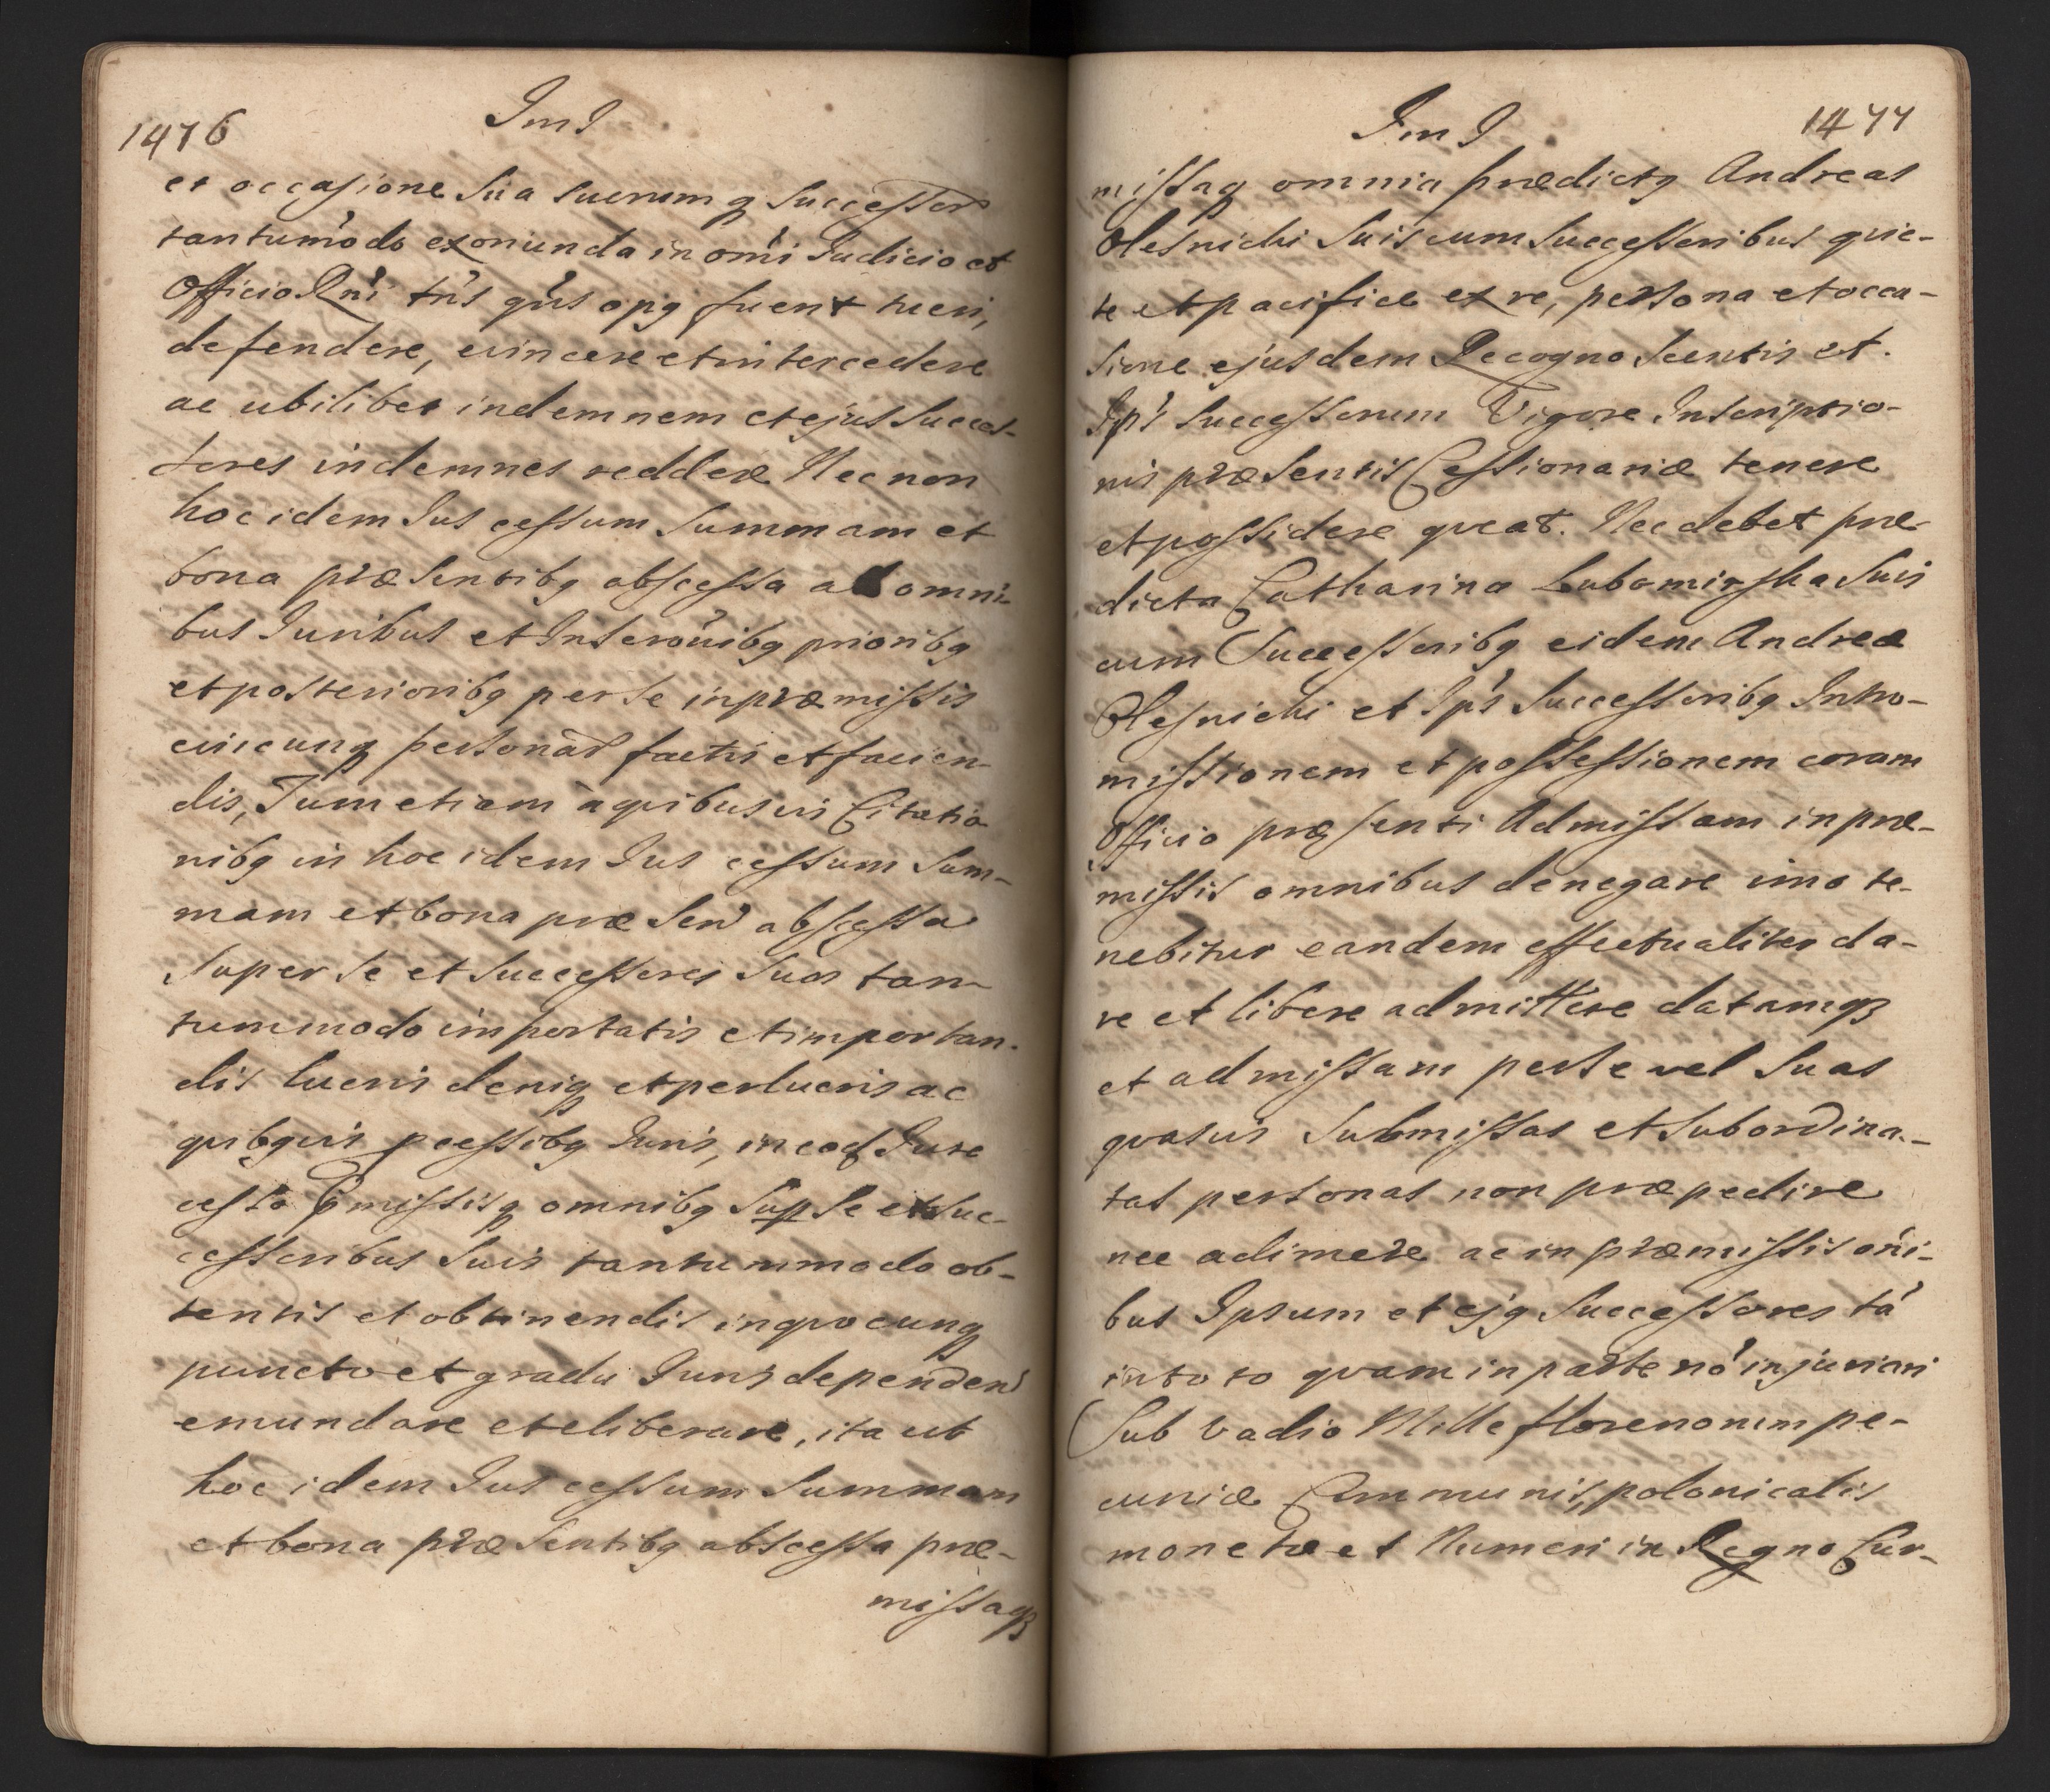 1476
ImJ
et occasione sua suorumq successor
tantum̄odo exoriunda in om̄i Judicio et
Officio Rn̄i tn̄s qn̄s opq fuerit tueri,
defendere, evincere et intercedere
ac ubilibet indemnem et ejus succes-
sores indemnes reddere Nec non
hoc idem Jus cessum summam et
bona præsentibq abscessa ab omni-
bus Juribus et Inscrōnibq prioribq
et posterioribq per se in præmissis
cuicunq personar factis et facien-
dis, Tum etiam à quibusvis Citatio
nibq in hoc idem Jus cessum sum-
mam et bona præsen abscessa
super se et successores suos tan-
tummodo importatis et importan-
dis lucris deniq et perlucris ac
quibqvis pcessibq Juris, in eod Jure
cesso pmissisq omnibq sup se et suc-
cessoribus suis tantummodo ob-
tentis et obtinendis in quocunq
puncto et gradu Juris dependen
emundare et eliberare, ita ut
hoc idem Jus cessum summam
et bona præsentibq abscessa præ-
missaqz
ImJ
1477
missaq omnia prædictq Andreas
Olesnicki suis cum successoribus quie-
te et pacifice ex re, persona et occa-
sione ejusdem Recognoscentis et
Ips̄ successorum Vigore Inscriptio-
nis præsentis Cessionariæ tenere
et possidere queat. Nec debet præ-
dicta Catharina Lubomirska suis
cum Successoribq eidem Andreæ
Olesnicki et Ips̄ successoribq Intro-
missionem et possessionem coram
Officio præsenti Admissam in præ-
missis omnibus denegare imo te-
nebitur eandem effectualiter da-
re et libere admittere datamqz
et admissam per se vel suas
quasvis submissas et subordina-
tas personas non præpedire
nec adimere ac in præmissis on̄i-
bus Ipsum et ejq successores tā
in toto quam in parte nō injuriari
Sub vadio Mille florenorum pe-
cuniæ Communis, polonicalis
monetæ et Numeri in Regno Cur-